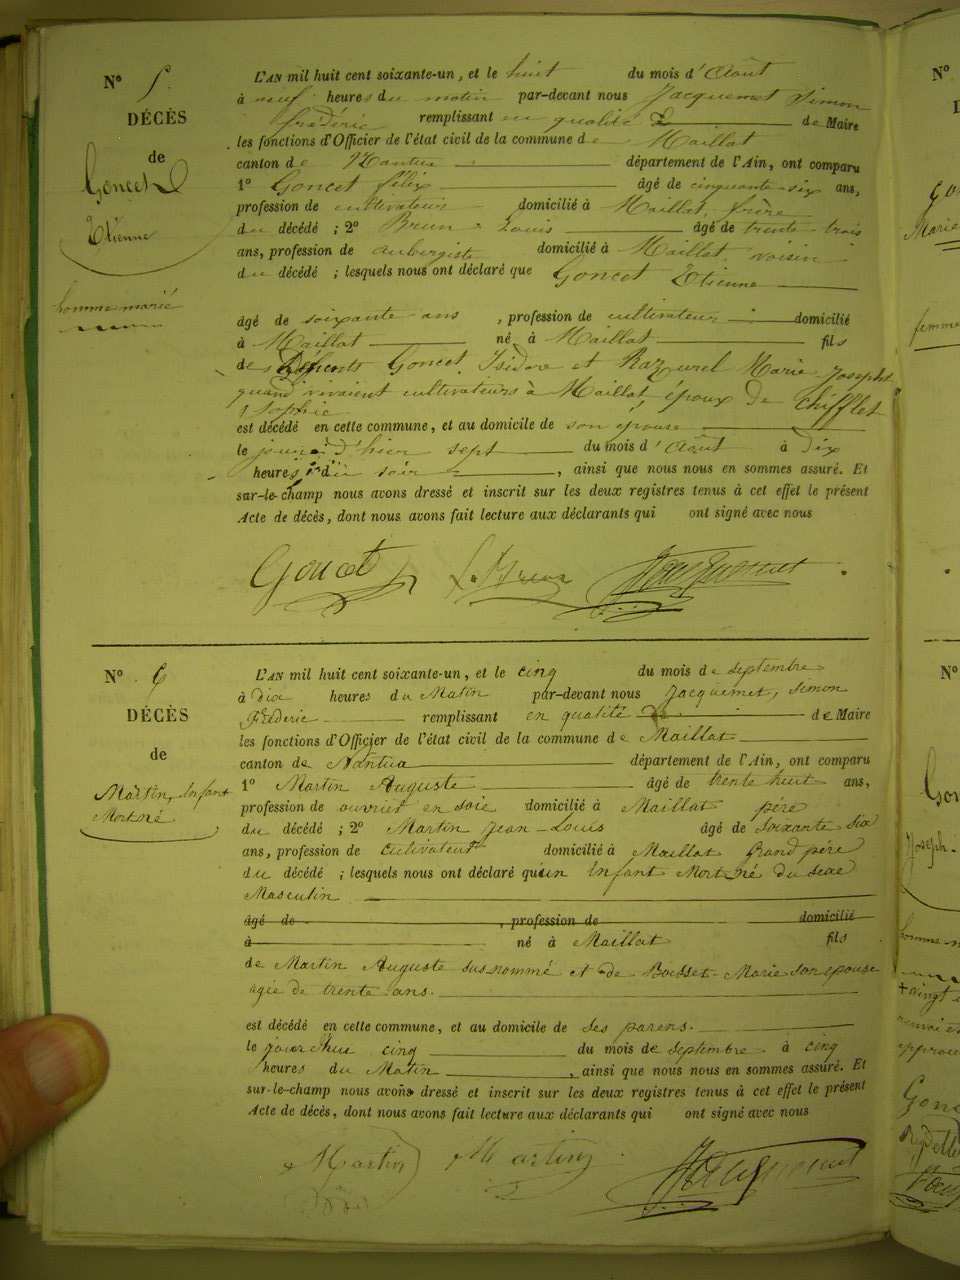 N° 5.
DÉCÈS
de
Goncet
Etienne
homme marié
L'AN mil huit cent soixante-un, et le huit du mois d'Août
à neuf heures du matin par-devant nous Jacquemet Simon
frédéric remplissant en qualité de Maire
les fonctions d'Officier de l'état civil de la commune de Maillat
canton de Nantua département de l'Ain, ont comparu
1° Goncet félix âgé de cinquante-six ans,
profession de cultivateur domicilié à Maillat, frère
du décédé ; 2° Brun Louis âgé de trente-trois
ans, profession de aubergiste domicilié à Maillat, voisin
du décédé ; lesquels nous ont déclaré que Goncet Etienne
âgé de soixante ans, profession de cultivateur domicilié
à Maillat né à Maillat fils
des Défunts Goncet Isidore et Razurel Marie Josephte
quand vivaient cultivateurs à Maillat, époux de Chifflet
Sophie
est décédé en cette commune, et au domicile de son épouse
le jour d'hier sept du mois d'Août à dix
heures du soir, ainsi que nous nous en sommes assuré. Et
sur-le-champ nous avons dressé et inscrit sur les deux registres tenus à cet effet le présent
Acte de décès, dont nous avons fait lecture aux déclarants qui ont signé avec nous
Goncet L. Brun Jacquemet
N° 6
DÉCÈS
de
Martin, Enfant
Mort né
L'AN mil huit cent soixante-un, et le cinq du mois de septembre
à dix heures du Matin par-devant nous Jacquemet, Simon
Fréderic remplissant en qualité de Maire
les fonctions d'Officier de l'état civil de la commune de Maillat
canton de Nantua département de l'Ain, ont comparu
1° Martin Auguste âgé de trente huit ans,
profession de ouvrier en soie domicilié à Maillat père
du décédé ; 2° Martin Jean-Louis âgé de soixante six
ans, profession de cultivateur domicilié à Maillat Grand père
du décédé ; lesquels nous ont déclaré qu'un Enfant Mort né du sexe
Masculin
âgé de, profession de domicilié
à né à Maillat fils
de Martin Auguste susnommé et de Marie son epouse
agée de trente ans.
est décédé en cette commune, et au domicile de ses parens.
le jour d'hui cinq du mois de septembre à cinq
heures du Matin, ainsi que nous nous en sommes assuré. Et
sur-le-champ nous avons dressé et inscrit sur les deux registres tenus à cet effet le présent
Acte de décès, dont nous avons fait lecture aux déclarants qui ont signé avec nous
Martin Martin Jacquemet
N°
Marie
femme
N°
Joseph